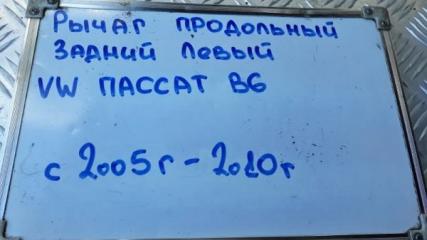 Рычаг продольный
Задний левый
VW Пассат B6
с 2005г - 2010г